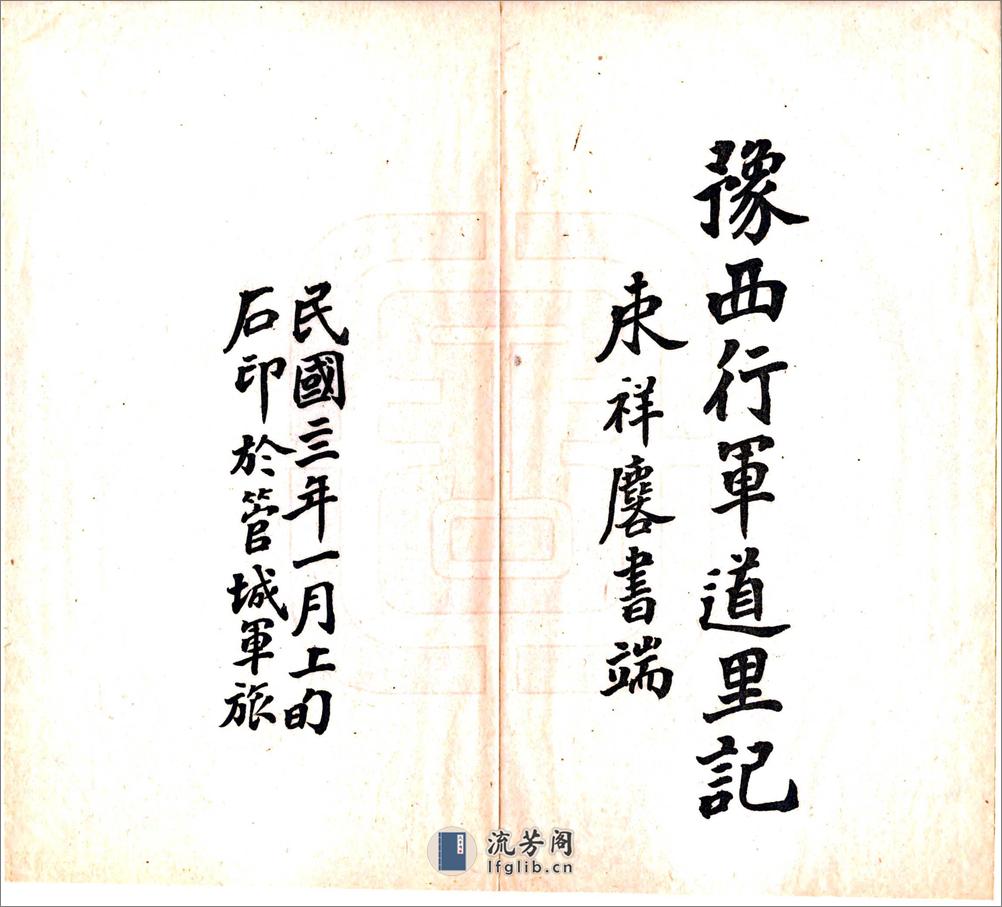 豫西行軍道里記
束祥麐書端
民國三年一月上旬
石印於管城軍旅
流芳阁
lfglib.cn